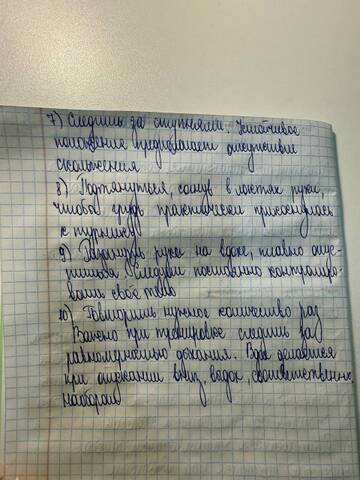 7) Следить за ступнями. Устойчивое
положение предполагает отсутствие
скольжения
8) Подтянуться, согнув в локтях руки,
чтобы грудь практически прикоснулась
к турнику
9) Разогнуть руки на вдохе, плавно опус-
титься. Следует постоянно контролиро-
вать своё тело
10) Повторить нужное количество раз
Важно при тренировке следить за
равномерностью дыхания. Вдох делается
при опускании вниз, выдох, соответственно,
наоборот